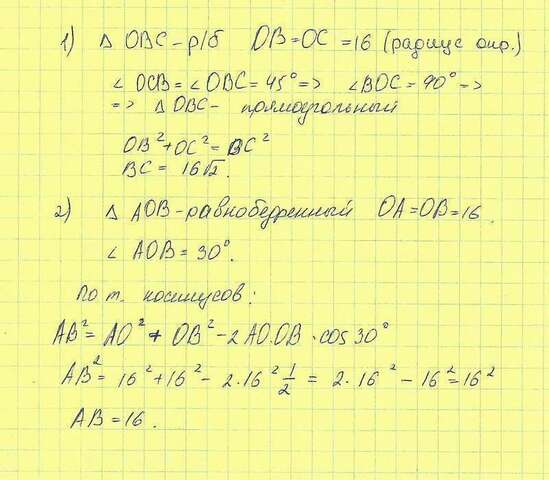 1) △ OBC - р/б OB = OC = 16 (радиус окр.)
∠ OCB = ∠ OBC = 45° => ∠BOC = 90° =>
=> △ OBC - прямоугольный
OB² + OC² = BC²
BC = 16√2.
2) △ AOB - равнобедренный OA = OB = 16.
∠ AOB = 30°.
По т. косинусов:
AB² = AO² + OB² - 2 AO·OB · cos 30°
AB² = 16² + 16² - 2·16² 1/2 = 2·16² - 16² = 16²
AB = 16.